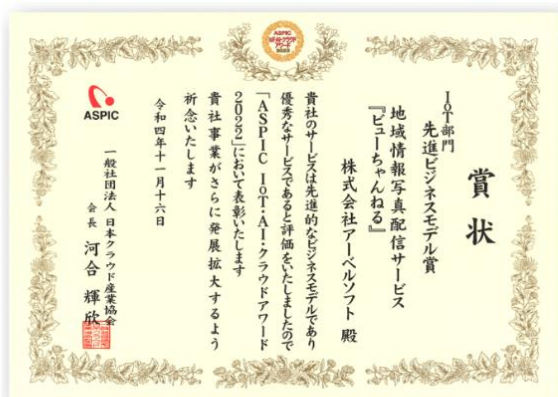 ASPIC
IoT・AI・クラウド
アワード
2022
賞状
IoT部門
先進ビジネスモデル賞
地域情報写真配信サービス
『ビューちゃんねる』
株式会社アーベルソフト 殿
貴社のサービスは先進的なビジネスモデルであり
優秀なサービスであると評価をいたしましたので
「ASPIC IoT・AI・クラウドアワード
2022」において表彰いたします
貴社事業がさらに発展拡大するよう
祈念いたします
令和四年十一月十六日
ASPIC
一般社団法人 日本クラウド産業協会
会長 河合 輝欣